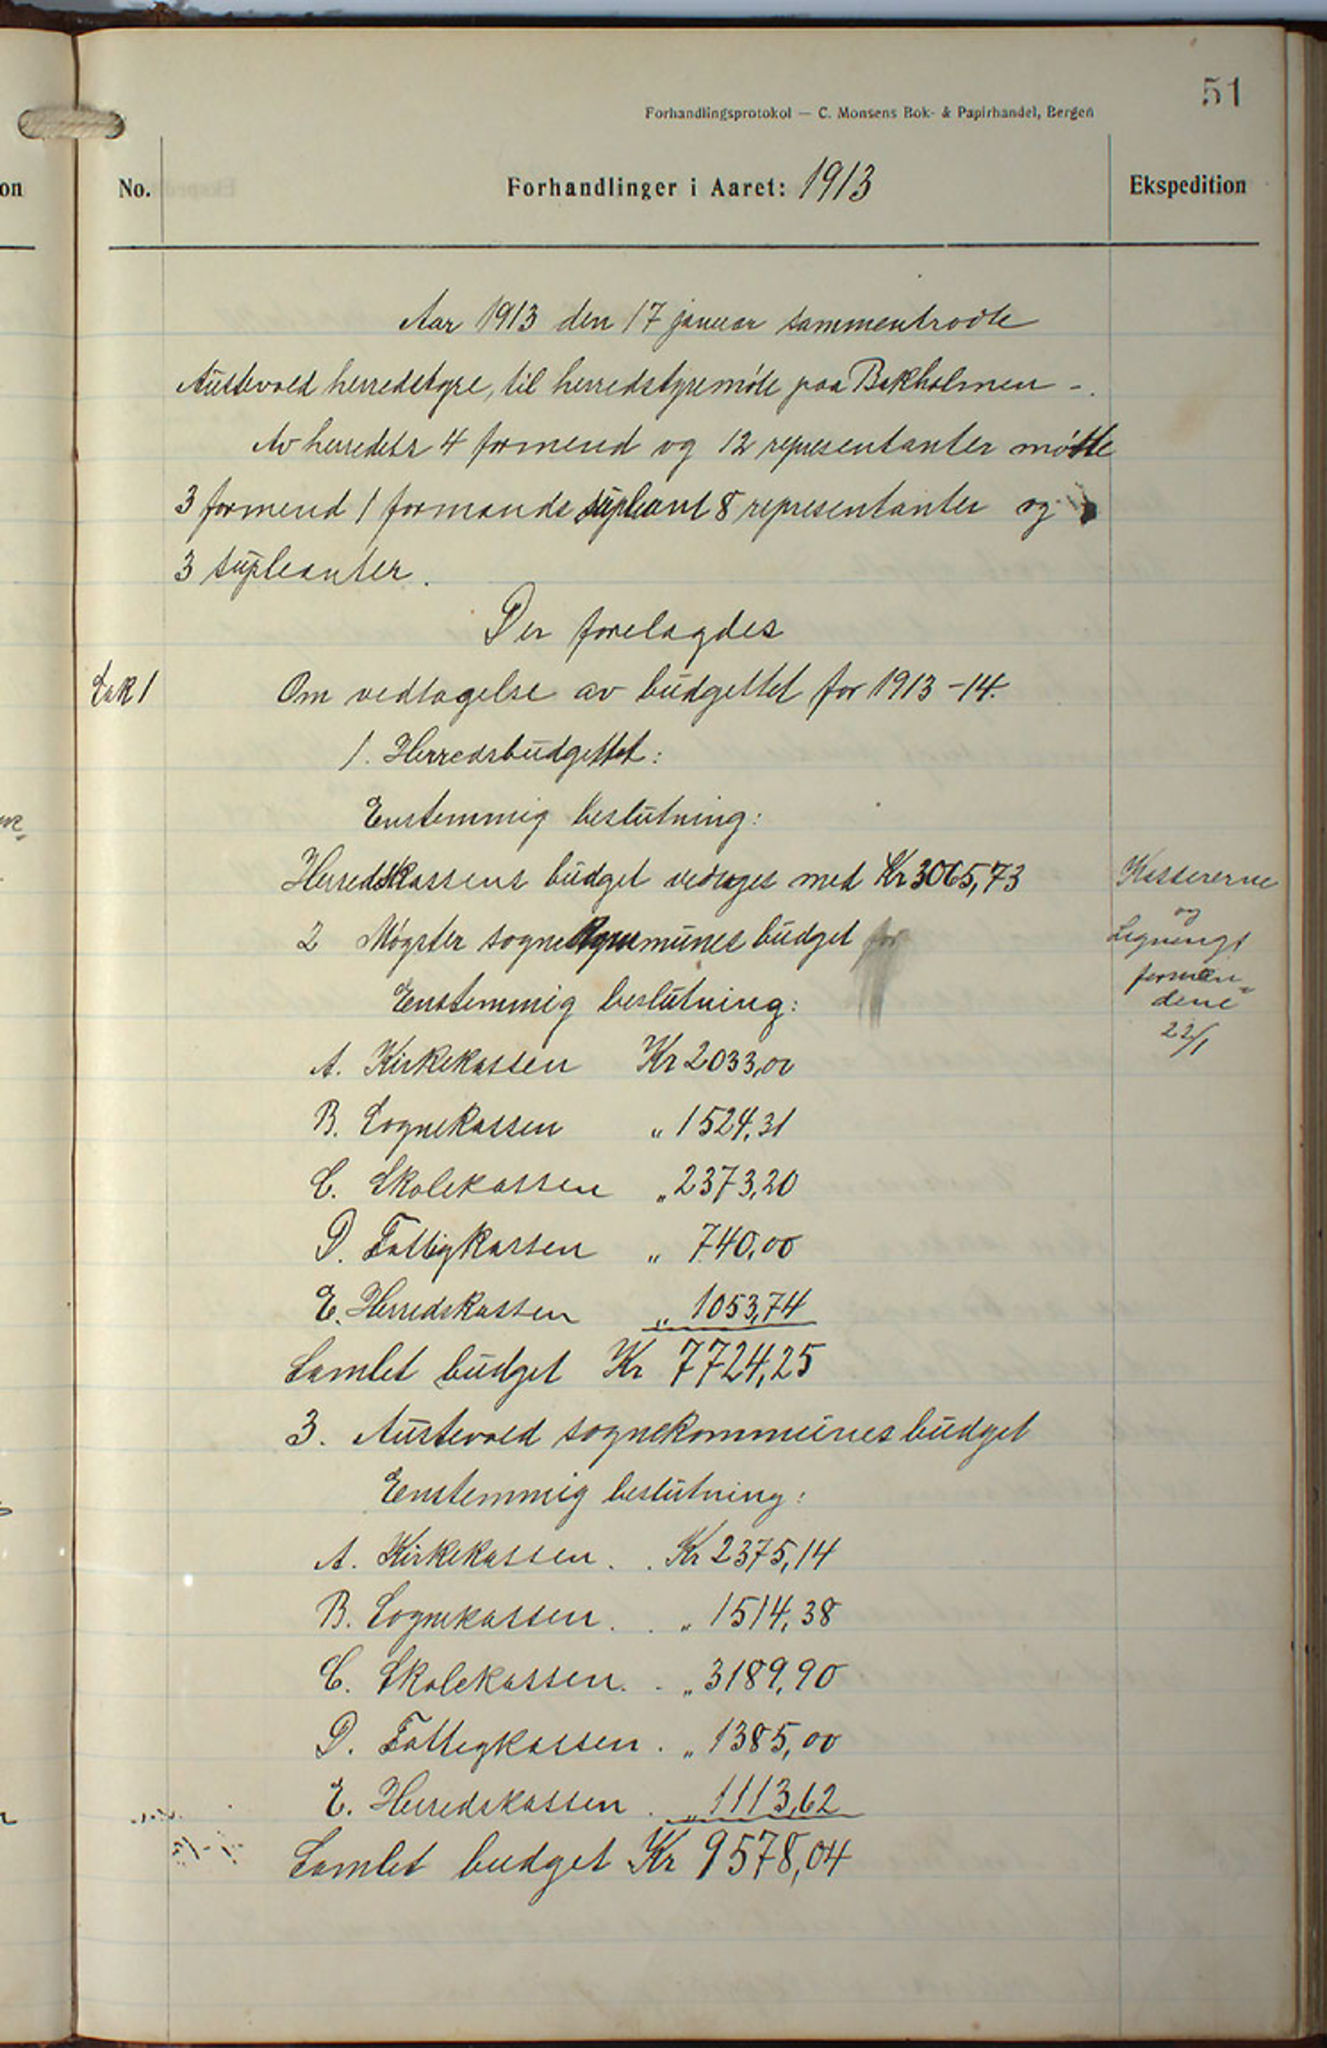 51
Forhandlingsprotokol — C. Monsens Bok- & Papirhandel, Bergen
No.
Forhandlinger i Aaret: 1913
Ekspedition
Aar 1913 den 17 januar sammentraadte
Austevold herredstyre, til herredstyremöte paa Bakholmen -.
Av herredets 4 formend og 12 representanter mötte
3 formend 1 formands supleant 8 representanter og
3 supleanter.
Der forelagdes
Sak 1
Om vedtagelse av budgettet for 1913-14.
1. Herredsbudgettet:
Enstemmig beslutning:
Herredskassens budget vedtages med Kr 3065,73
2 Møgster sognekommunes budget for
Enstemmig beslutning:
A. Kirkekassen Kr 2033,00
B. Sognekassen „ 1524,31
C. Skolekassen „ 2373,20
D. Fattigkassen „ 740,00
E. Herredskassen „ 1053,74
Samlet budget Kr 7724,25
3. Austevold sognekommunes budget
Enstemmig beslutning:
A. Kirkekassen . . Kr 2375,14
B. Sognekassen . . „ 1514,38
C. Skolekassen . . „ 3189,90
D. Fattigkassen . „ 1385,00
E. Herredskassen . „ 1113,62
Samlet budget Kr 9578,04
Kassererne
og
Lignings
formæn=
dene
22/1